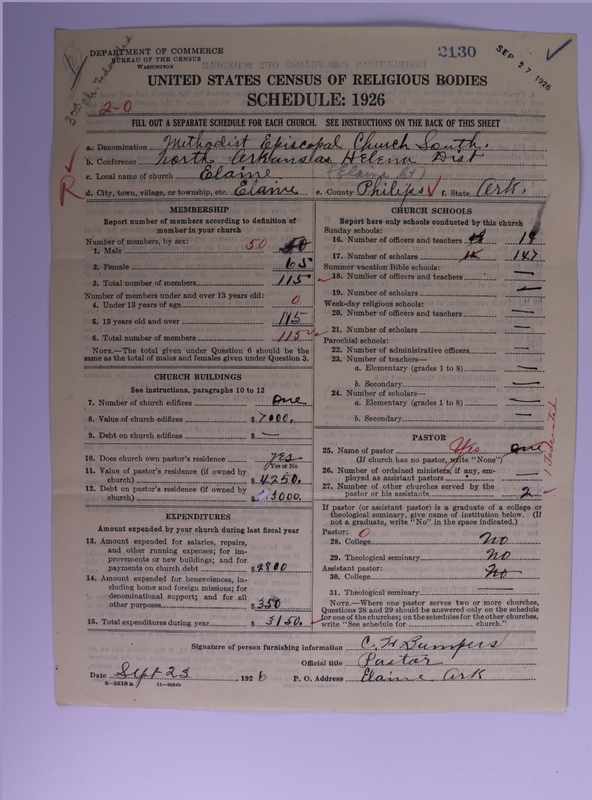 DEPARTMENT OF COMMERCE
BUREAU OF THE CENSUS
WASHINGTON
2130
SEP 27 1926
UNITED STATES CENSUS OF RELIGIOUS BODIES
SCHEDULE: 1926
2-0
FILL OUT A SEPARATE SCHEDULE FOR EACH CHURCH. SEE INSTRUCTIONS ON THE BACK OF THIS SHEET
a. Denomination Methodist Episcopal Church South.
b. Conference North Arkansas Helena Dist
c. Local name of church Elaine
R
d. City, town, village, or township, etc. Elaine e. County Philips f. State Ark.
MEMBERSHIP
Report number of members according to definition of
member in your church
Number of members, by sex:
1. Male 50 50
2. Female 65
3. Total number of members 115
Number of members under and over 13 years old:
4. Under 13 years of age 0
5. 13 years old and over 115
6. Total number of members 115
NOTE.—The total given under Question 6 should be the
same as the total of males and females given under Question 3.
CHURCH BUILDINGS
See instructions, paragraphs 10 to 12
7. Number of church edifices one
8. Value of church edifices $7000.
9. Debt on church edifices $ —
10. Does church own pastor's residence? yes
Yes or No
11. Value of pastor's residence (if owned by
church) $4250.
12. Debt on pastor's residence (if owned by
church) $3000.
EXPENDITURES
Amount expended by your church during last fiscal year
13. Amount expended for salaries, repairs,
and other running expenses; for im-
provements or new buildings; and for
payments on church debt $2800
14. Amount expended for benevolences, in-
cluding home and foreign missions; for
denominational support; and for all
other purposes $350
15. Total expenditures during year $3150.
CHURCH SCHOOLS
Report here only schools conducted by this church
Sunday schools:
16. Number of officers and teachers 19
17. Number of scholars 147
Summer vacation Bible schools:
18. Number of officers and teachers —
19. Number of scholars —
Week-day religious schools:
20. Number of officers and teachers —
21. Number of scholars —
Parochial schools:
22. Number of administrative officers —
23. Number of teachers—
a. Elementary (grades 1 to 8) —
b. Secondary —
24. Number of scholars—
a. Elementary (grades 1 to 8) —
b. Secondary —
PASTOR
25. Name of pastor Yes one
(If church has no pastor, write "None")
26. Number of ordained ministers, if any, em-
ployed as assistant pastors —
27. Number of other churches served by the
pastor or his assistants 2
If pastor (or assistant pastor) is a graduate of a college or
theological seminary, give name of institution below. (If
not a graduate, write "No" in the space indicated.)
Pastor: 0
28. College No
29. Theological seminary No
Assistant pastor:
30. College No
31. Theological seminary —
NOTE.—Where one pastor serves two or more churches,
Questions 28 and 29 should be answered only on the schedule
for one of the churches; on the schedules for the other churches,
write "See schedule for church."
Signature of person furnishing information C. H Bumpers
Official title Pastor
Date Sept 23, 1926 P. O. Address Elaine Ark
8-5518 a